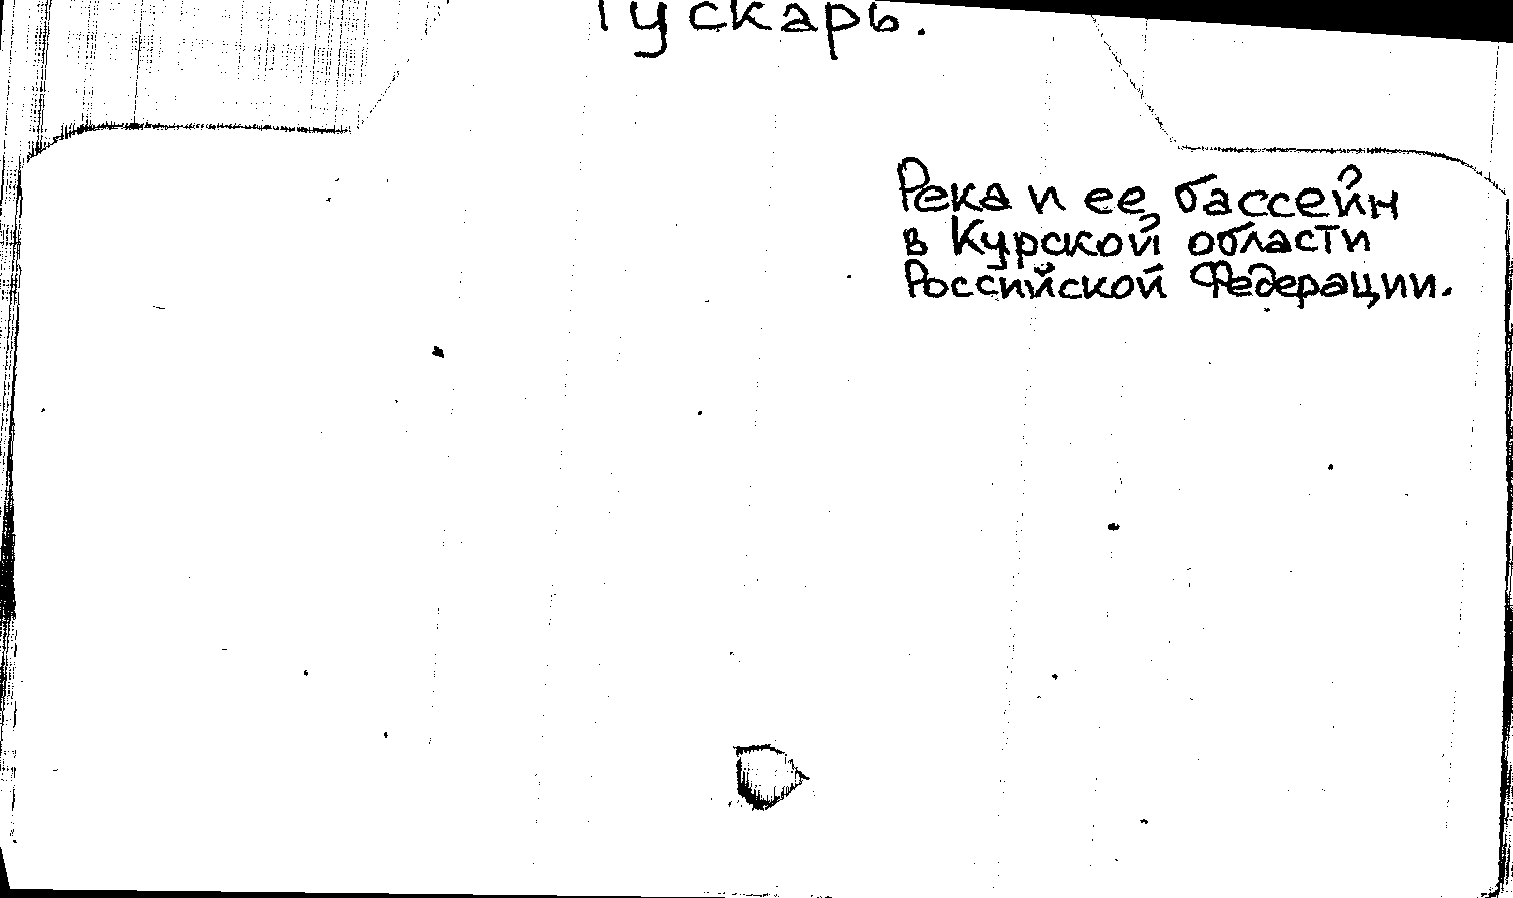 Тускарь.
Река и ее бассейн
в Курской области
Российской Федерации.